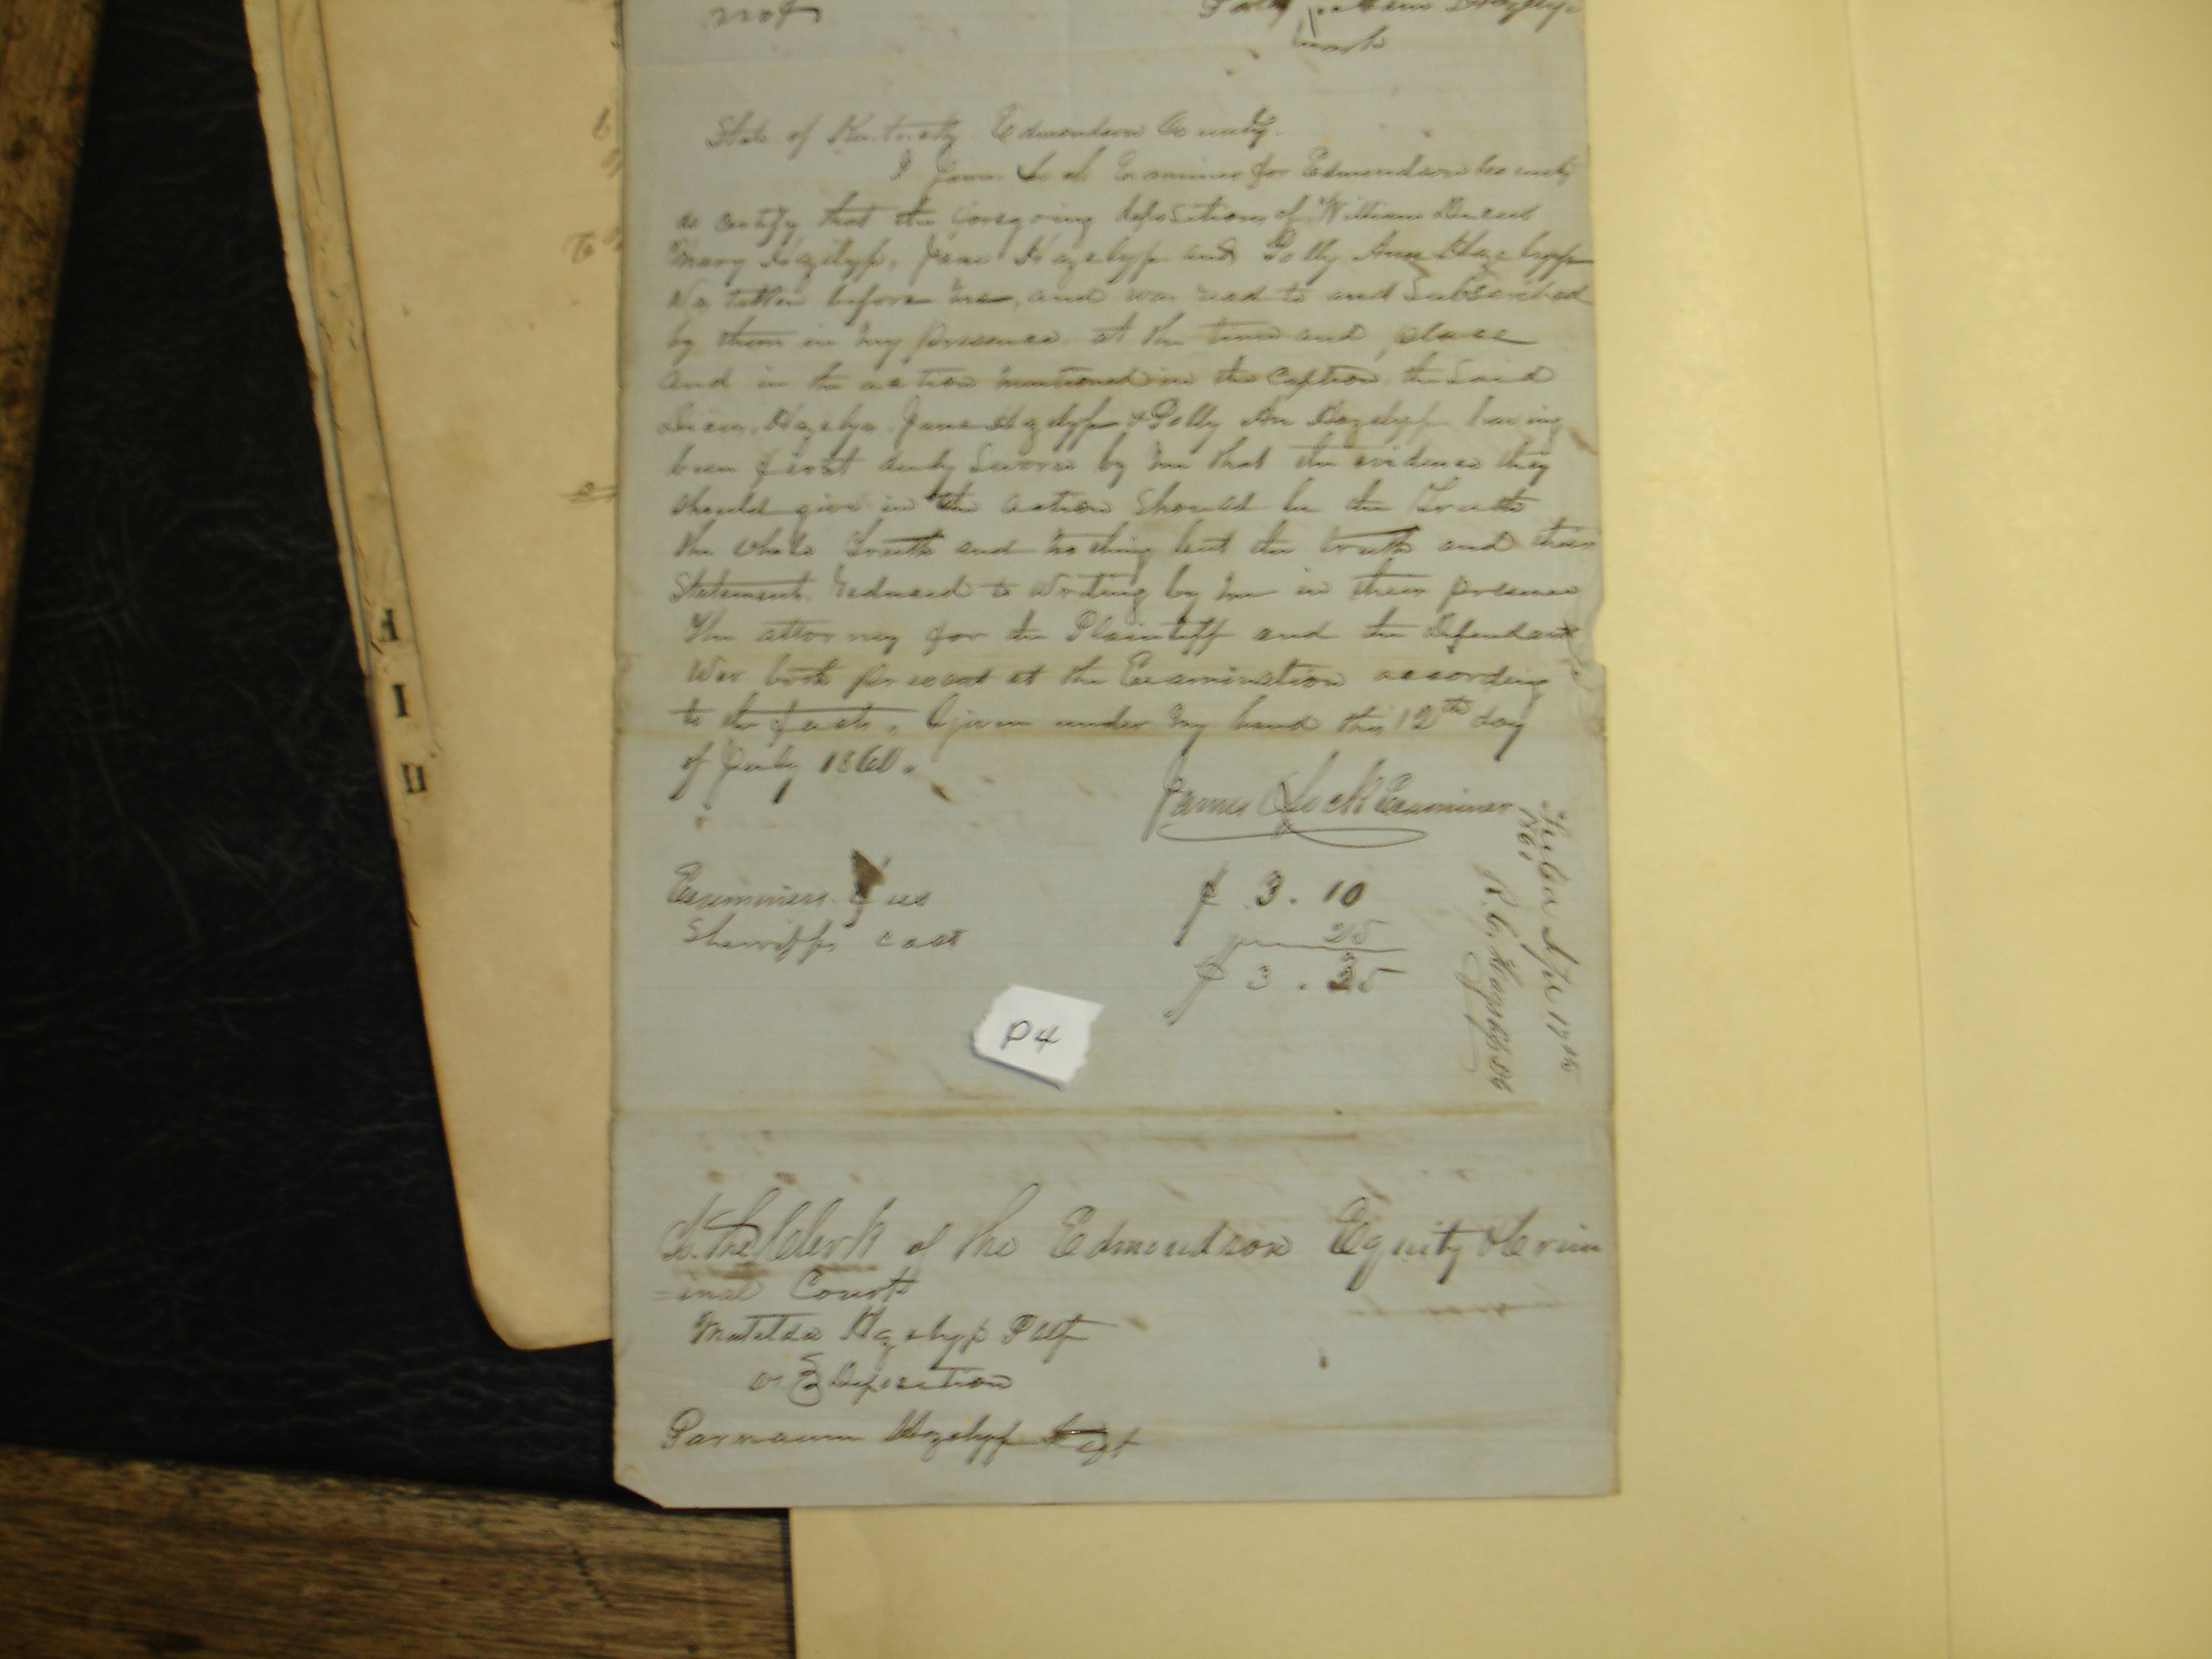 not Polly Ann Hazelyp
mark
State of Kentucky Edmondson County.
I James Lock Examiner for Edmondson County
do certify that the foregoing depositions of William
Mary Hazelyp, Jane Hazelyp and Polly Ann Hazelypp
Was before me, and was read to and Subscribed
by them in my presence at the time and place
and in the action mentioned in the Caption, the Said
Hazelyp Jane Hazelyp & Polly An Hazelypp having
been first duly Sworn by me that the evidence they
should give in the action Should be the Truth
the whole Truth and nothing but the truth and their
Statement reduced to Writing by me in their presence
The attorney for the Plaintiff and the Defendant
War both present at the Examination according
to the Given under my hand this 12th day
of July 1860.
James Lock Examiner
Examiners fees $ 3. 10
Sherriffs cost 25
$ 3. 35
P4
R. C. Hazelip
To. The Clerk of the Edmondson Equity & Crim
=inal Court
Matilda Hazelyp Pltf
vs Deposition
Parmaum Hazelyp
H I H